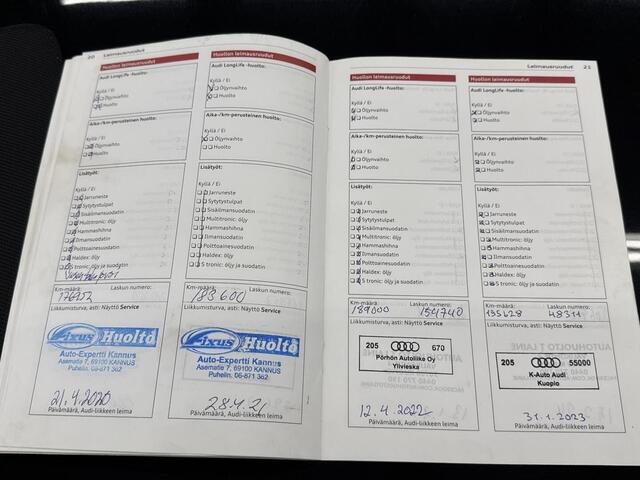 20 Leimausruudut
Huollon leimausruudut
Audi LongLife -huolto:
Kyllä / Ei
Öljynvaihto
Huolto
Aika-/km-perusteinen huolto:
Kyllä / Ei
Öljynvaihto
Huolto
Lisätyöt:
Kyllä / Ei
Jarruneste
Sytytystulpat
Sisäilmansuodatin
Multitronic: öljy
Hammashihna
Ilmansuodatin
Polttoainesuodatin
Haldex: öljy
S tronic: öljy ja suodatin
Km-määrä: Laskun numero:
176952
Liikkumisturva, asti: Näyttö Service
Fixus Huolto
Auto-Expertti Kannus
Asematie 7, 69100 KANNUS
Puhelin. 06-871 362
21.4.2020
Päivämäärä, Audi-liikkeen leima
Huollon leimausruudut
Audi LongLife -huolto:
Kyllä / Ei
Öljynvaihto
Huolto
Aika-/km-perusteinen huolto:
Kyllä / Ei
Öljynvaihto
Huolto
Lisätyöt:
Kyllä / Ei
Jarruneste
Sytytystulpat
Sisäilmansuodatin
Multitronic: öljy
Hammashihna
Ilmansuodatin
Polttoainesuodatin
Haldex: öljy
S tronic: öljy ja suodatin
Km-määrä: Laskun numero:
183600
Liikkumisturva, asti: Näyttö Service
Fixus Huolto
Auto-Expertti Kannus
Asematie 7, 69100 KANNUS
Puhelin. 06-871 362
28.4.21
Päivämäärä, Audi-liikkeen leima
Leimausruudut 21
Huollon leimausruudut
Audi LongLife -huolto:
Kyllä / Ei
Öljynvaihto
Huolto
Aika-/km-perusteinen huolto:
Kyllä / Ei
Öljynvaihto
Huolto
Lisätyöt:
Kyllä / Ei
Jarruneste
Sytytystulpat
Sisäilmansuodatin
Multitronic: öljy
Hammashihna
Ilmansuodatin
Polttoainesuodatin
Haldex: öljy
S tronic: öljy ja suodatin
Km-määrä: Laskun numero:
189000 154740
Liikkumisturva, asti: Näyttö Service
205 670
Pörhön Autoliike Oy
Ylivieska
12.4.2022
Päivämäärä, Audi-liikkeen leima
Huollon leimausruudut
Audi LongLife -huolto:
Kyllä / Ei
Öljynvaihto
Huolto
Aika-/km-perusteinen huolto:
Kyllä / Ei
Öljynvaihto
Huolto
Lisätyöt:
Kyllä / Ei
Jarruneste
Sytytystulpat
Sisäilmansuodatin
Multitronic: öljy
Hammashihna
Ilmansuodatin
Polttoainesuodatin
Haldex: öljy
S tronic: öljy ja suodatin
Km-määrä: Laskun numero:
195628 48311
Liikkumisturva, asti: Näyttö Service
205 55000
K-Auto Audi
Kuopio
31.1.2023
Päivämäärä, Audi-liikkeen leima